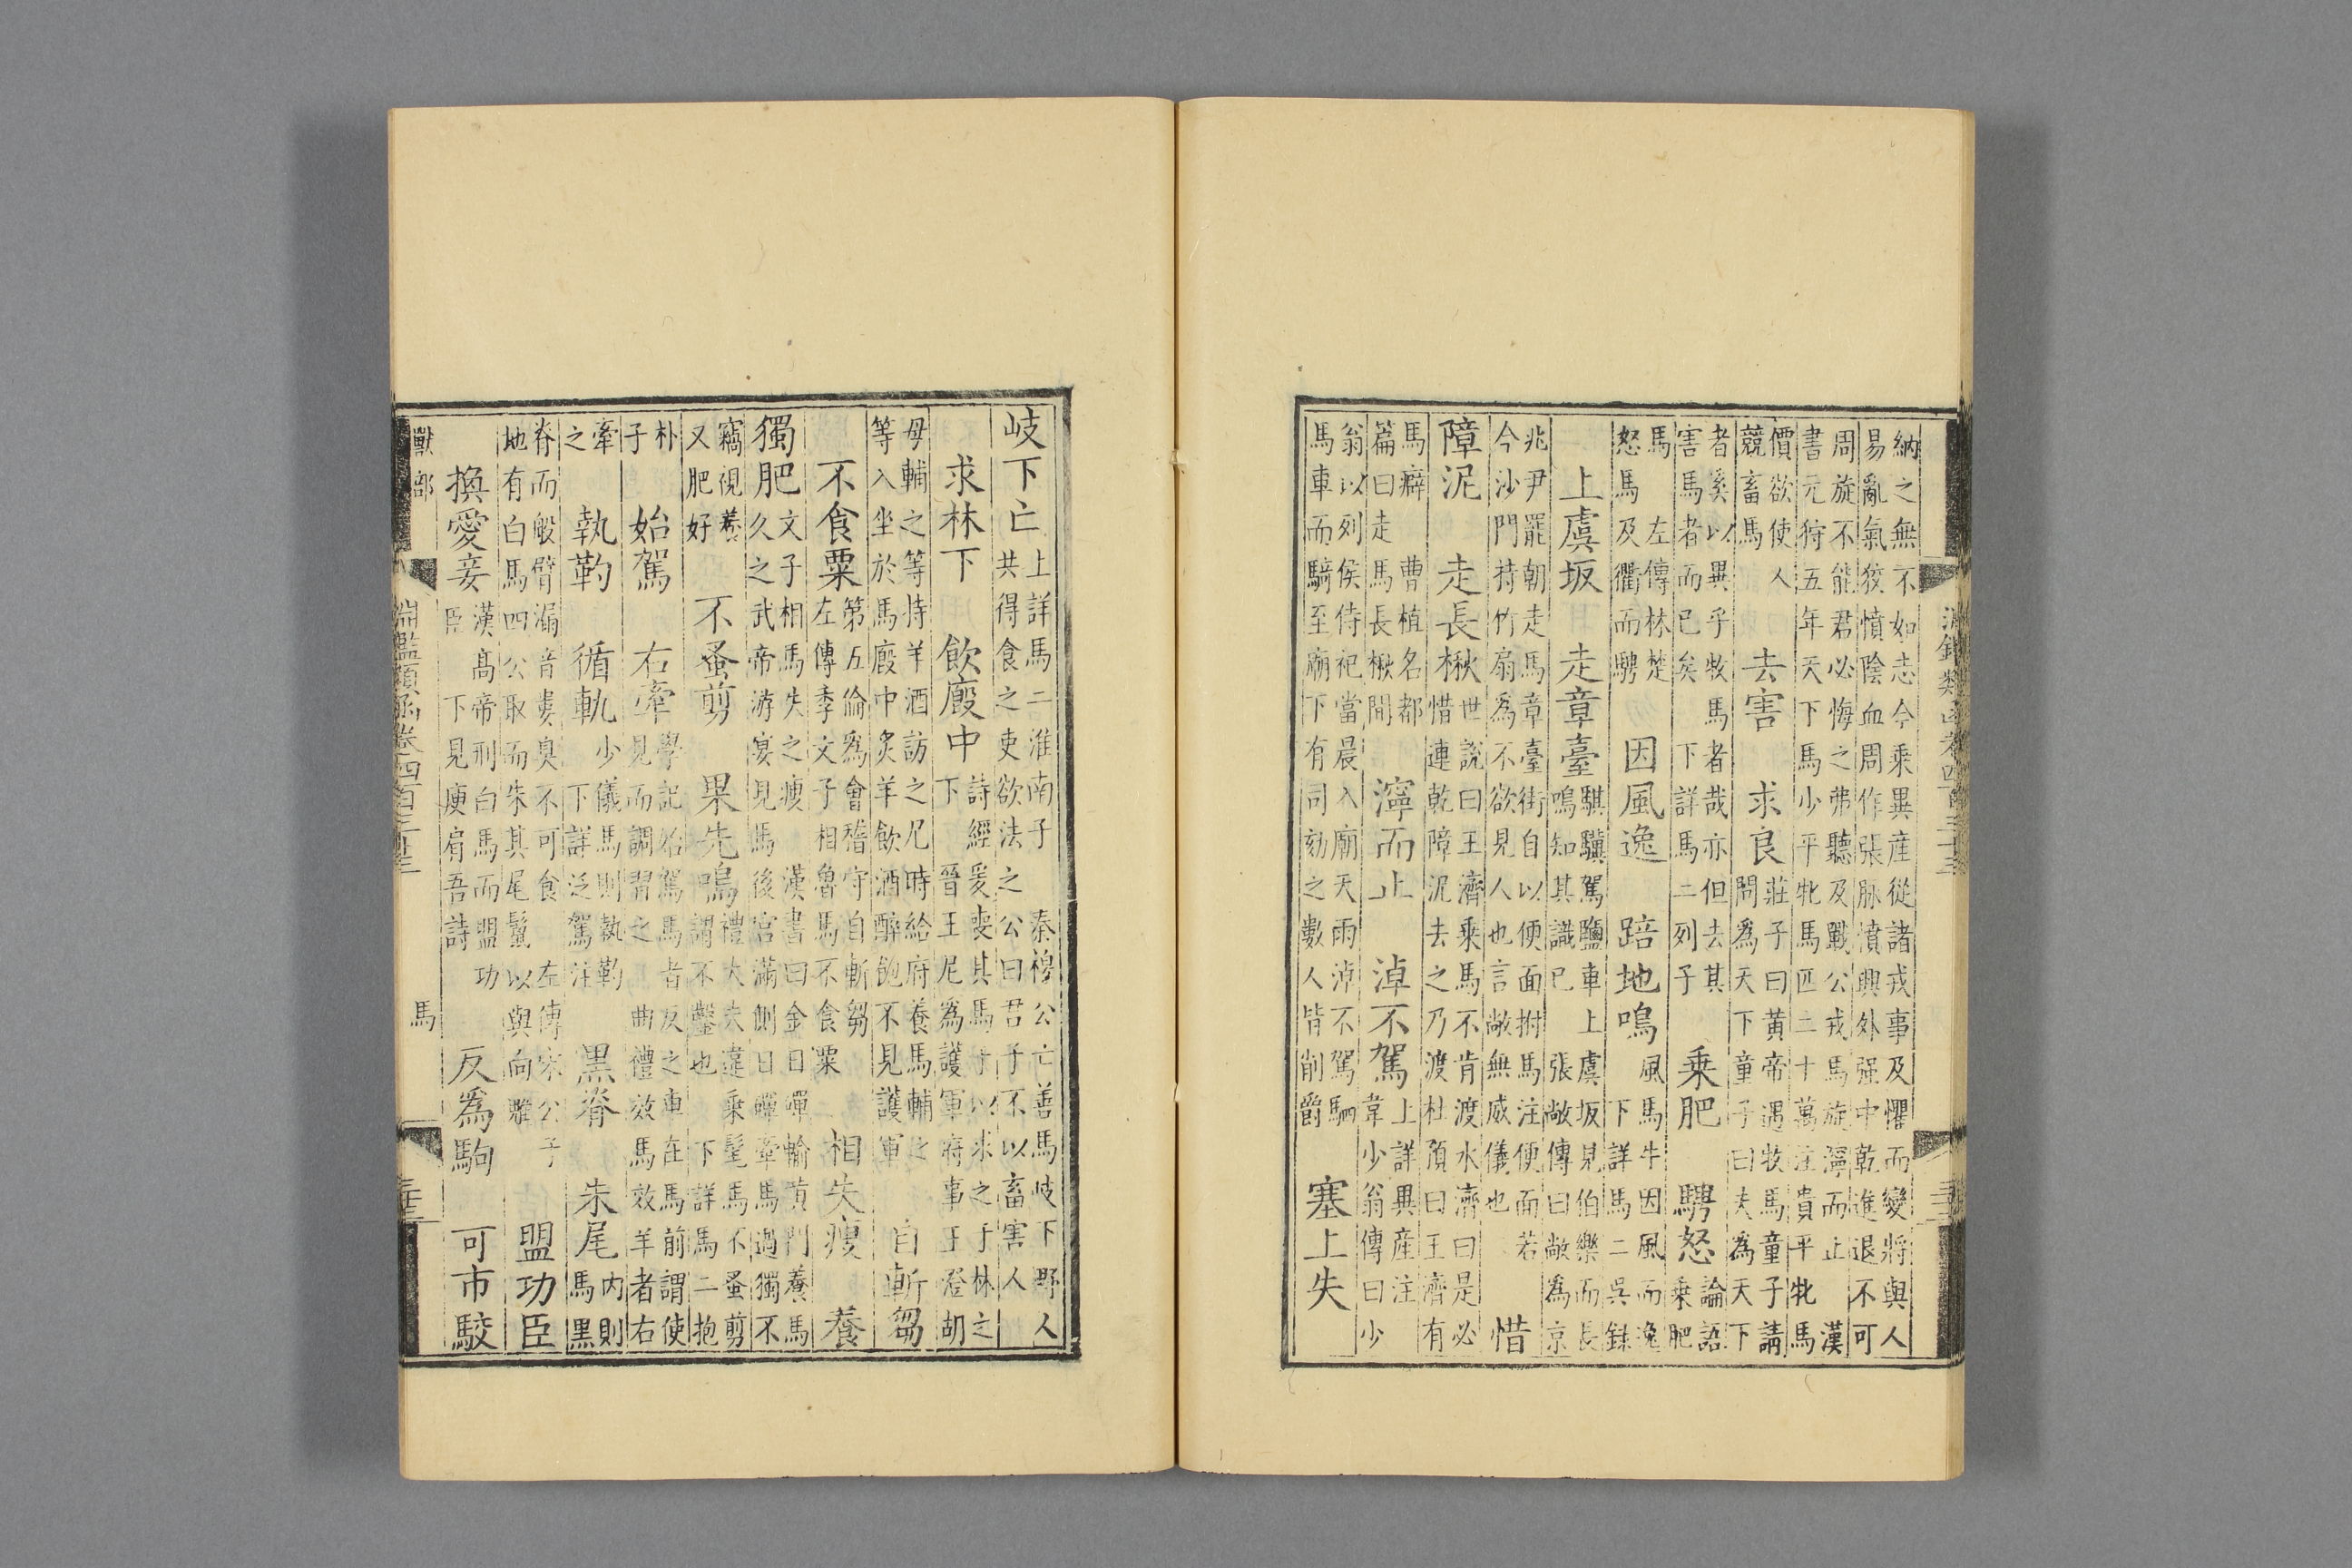 納之無不如志今乗異産從諸戎事及懼而變將與人
易亂氣狡憤陰血周作張脉憤興外强中乾進退不可
周旋不能君必悔之弗聽及戰公戎馬旋濘而止　漢
書元狩五年天下馬少平牝馬匹二十萬注貴平牝馬
價欲使人
競畜馬
去害　求良
莊子曰黄帝遇牧馬童子請
問為天下童子曰夫為天下
者奚以異乎牧馬者哉亦但去其
害馬者而已矣　下詳馬二列子
乗肥　騁怒
論語
乗肥
馬　左傳林楚
怒馬及衢而騁
因風逸　踣地鳴
風馬牛因風而逸
下詳馬二吳録
上虞坂　走章臺
騏驥駕鹽車上虞坂見伯樂而長
鳴知其識已　張敞傳曰敞為京
兆尹罷朝走馬章臺街自以便面拊馬注便面若
今沙門持竹扇為不欲見人也言敞無威儀也
惜
障泥　走長楸
世説曰王濟乗馬不肯渡水濟曰是必
惜連乾障泥去之乃渡杜預曰王濟有
馬癖　曹植名都
篇曰走馬長楸間
濘而止　淖不駕
上詳異産注
韋少翁傳曰少
翁以列侯侍祀當晨入廟天雨淖不駕駟
馬車而騎至廟下有司劾之數人皆削爵
塞上失
岐下亡
上詳馬二淮南子　秦穆公亡善馬岐下野人
共得食之吏欲法之公曰君子不以畜害人
求林下　飲廄中
詩經爰喪其馬于以求之于林之
下　晉王尼為護軍府事王澄胡
毋輔之等持羊酒訪之尼時給府養馬輔之
等入坐於馬廄中炙羊飲酒醉飽不見護軍
自斬芻
不食粟
第五倫為會稽守自斬芻
左傳季文子相魯馬不食粟
相失瘦　養
獨肥
文子相馬失之瘦　漢書曰金日磾輸黄門養馬
久之武帝游宴見馬後宫滿側日磾牽馬過獨不
竊視養
又肥好
不蚤剪　果先鳴
禮大夫違乗髦馬不蚤剪
謂不鬄也　下詳馬二抱
朴
子
始駕　右牽
學記始駕馬者反之車在馬前謂使
見而調習之　曲禮效馬效羊者右
牽
之
執靮　循軌
少儀馬則執靮
下詳泛駕注
黒脊　朱尾
内則
馬黒
脊而般臂漏音婁臭不可食　左傳宋公子
地有白馬四公取而朱其尾鬣以與向魋
盟功臣
換愛妾
漢高帝刑白馬而盟功
臣　下見庾肩吾詩
反為駒　可市駿
獸部　淵鑑類函卷四百三十三　馬